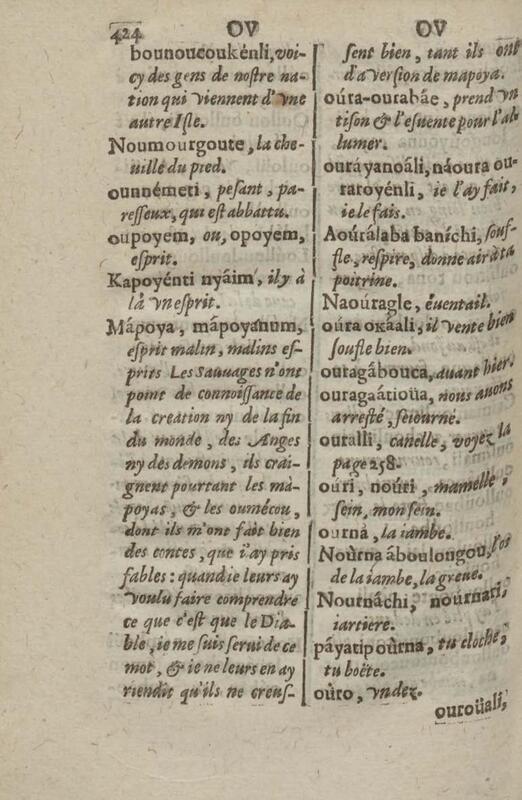 424
OV
OV
bounoucoukénli, voi-
cy des gens de nostre na-
tion qui viennent d'vne
autre Isle.
Noumourgoute, la che-
uille du pied.
ounnémeti, pesant, pa-
resseux, qui est abbattu.
oupoyem, ou, opoyem,
esprit.
Kapoyénti nyáim, il y à
là vn esprit.
Mápoya, mápoyanum,
esprit malin, malins es-
prits Les Sauuages n'ont
point de connoissance de
la creation ny de la fin
du monde, des Anges
ny des demons, ils crai-
gnent pourtant les má-
poyas, & les oumécou,
dont ils m'ont fait bien
des contes, que i'ay pris
fables: quand ie leurs ay
voulu faire comprendre
ce que c'est que le Dia-
ble, ie me suis serui de ce
mot, & ie ne leurs en ay
rien dit qu'ils ne creus-
sent bien, tant ils ont
d'auersion de mapoya.
oúra-ourabáe, prend vn
tison & l'esuente pour l'al
lumer.
ouráyanoáli, náoura ou-
raroyénli, ie l'ay fait,
ie le fais.
Aoúrálaba baníchi, souf-
fle, respire, donne air à ta
poitrine.
Naoúragle, éuentail.
oúra oKáali, il vente bien
soufle bien.
ouragábouca, auant hier.
ouragaátioüa, nous auons
arresté, seiourné.
ouralli, canelle, voyez la
page 258.
oúri, noúri, mamelle,
sein, mon sein.
ourná, la iambe.
Noùrna áboulongou, l'os
de la iambe, la greue.
Nournáchi, nournari,
iartiere.
páyatip oùrna, tu cloche,
tu boëte.
oùro, vndez.
ouroüali,